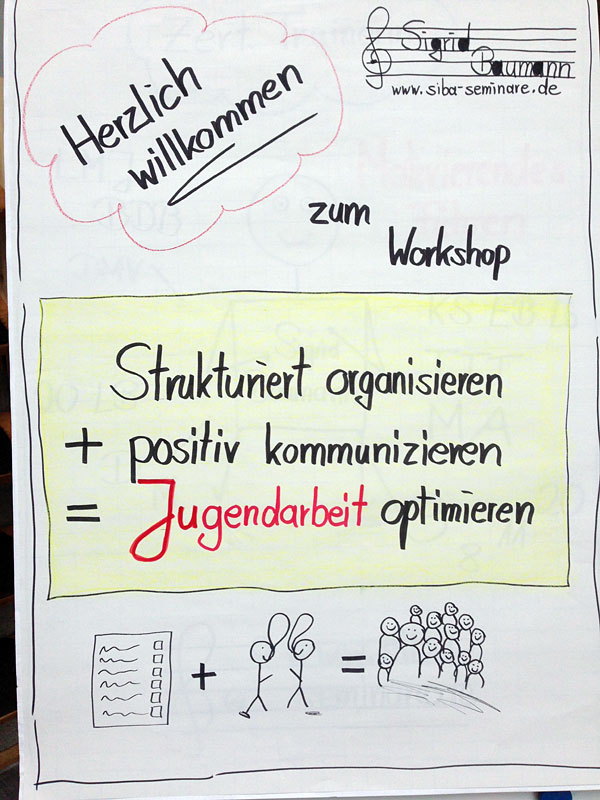 Sigrid
Baumann
www.siba-seminare.de
Herzlich
willkommen
zum
Workshop
Strukturiert organisieren
+ positiv kommunizieren
= Jugendarbeit optimieren
+ =